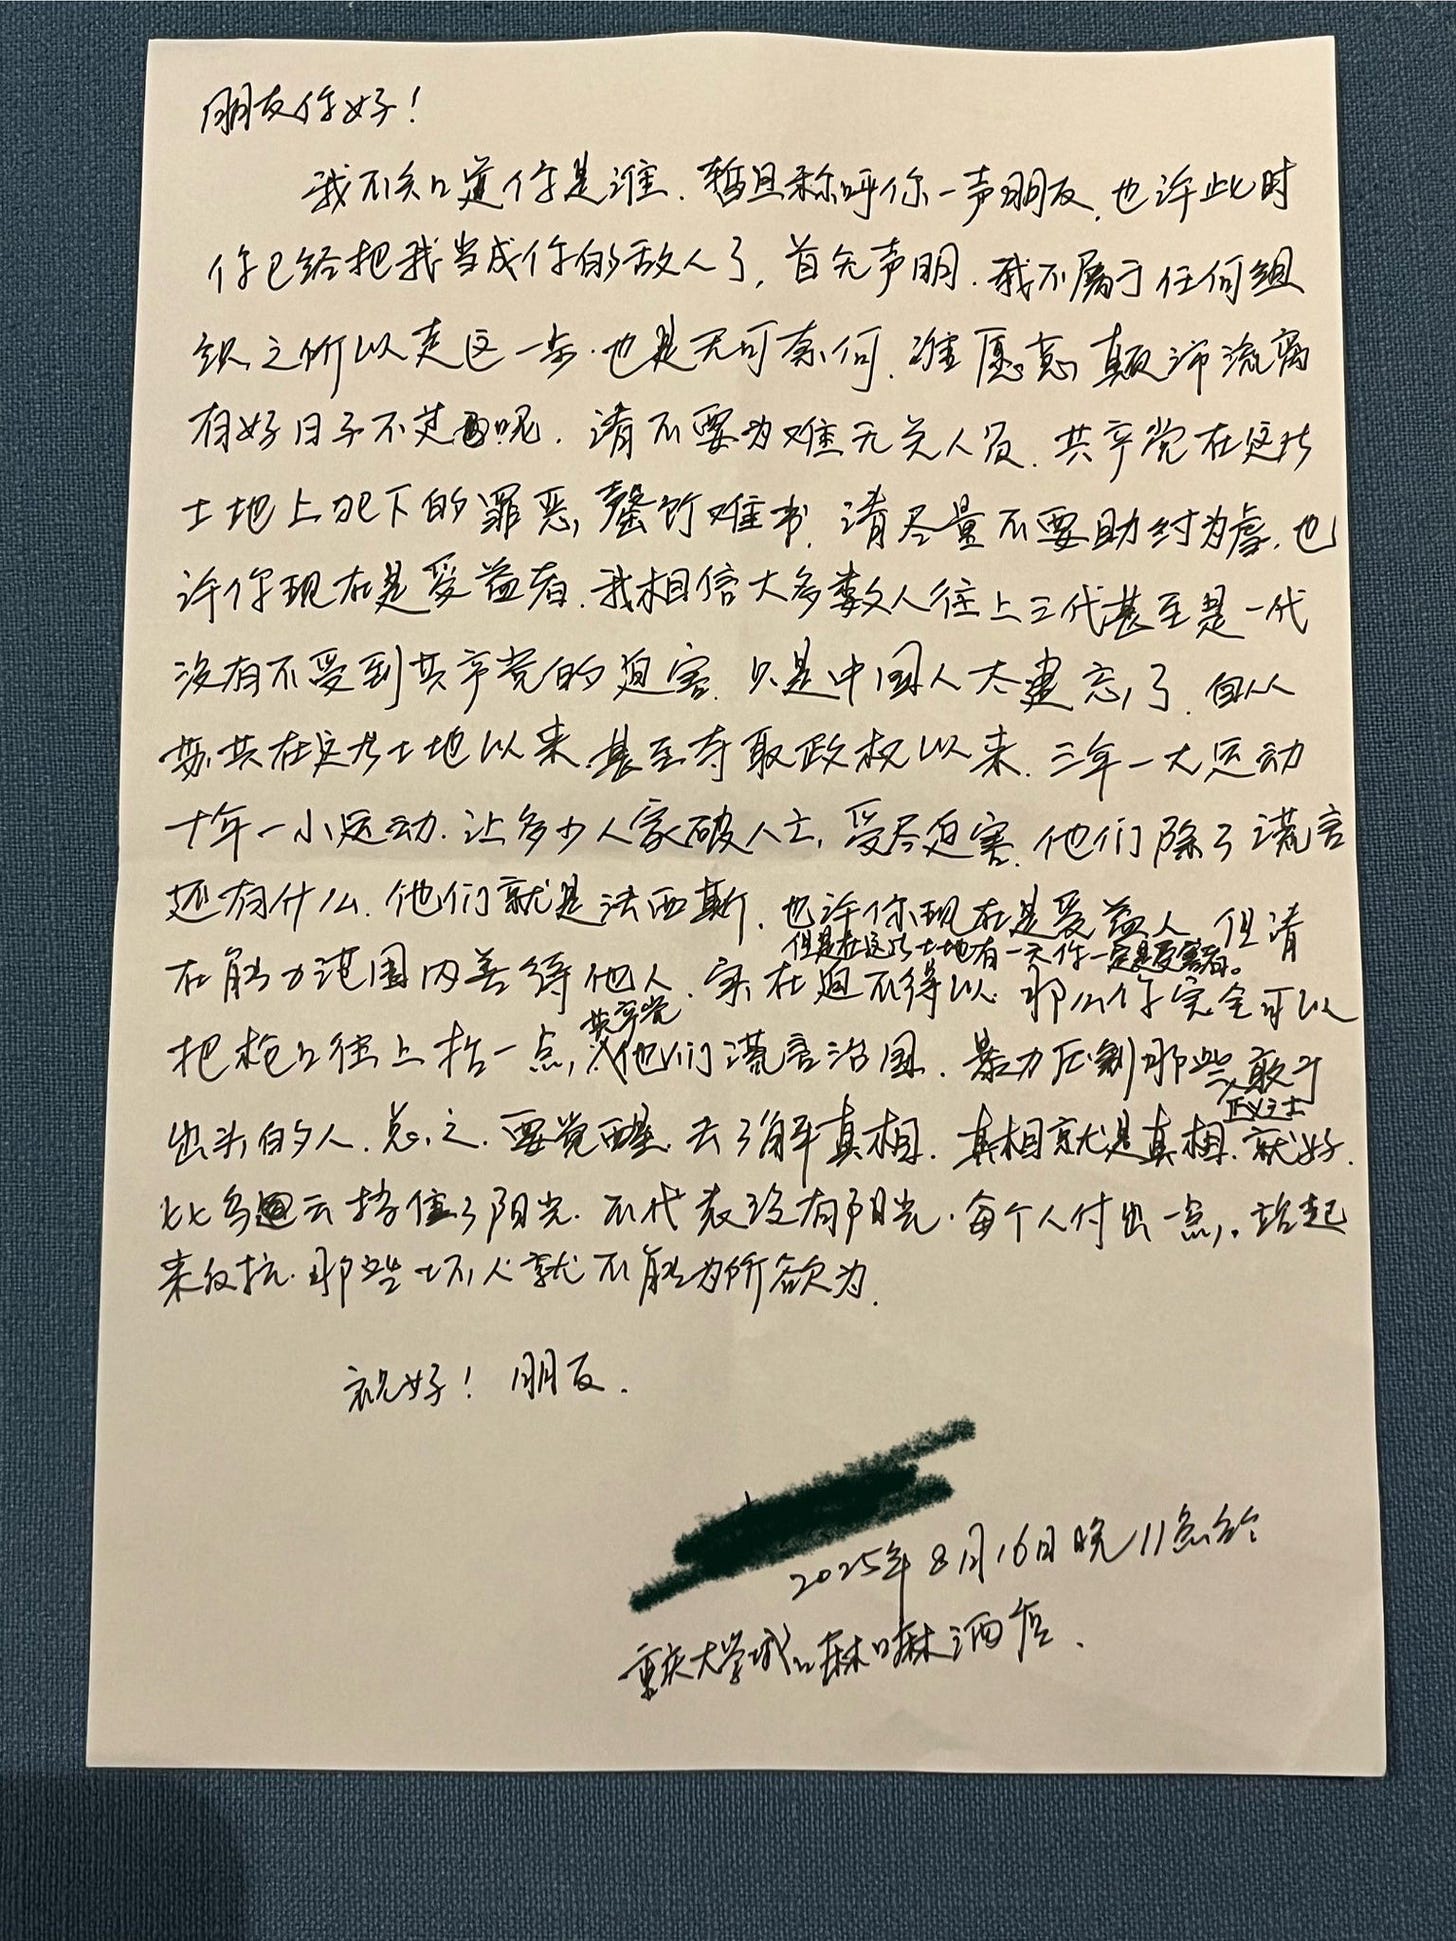 朋友你好！
我不知道你是谁.暂且称呼你一声朋友,也许此时
你已给把我当成你的敌人了,首先声明.我不属于任何组
织之所以走这一步.也是无可奈何.谁愿意颠沛流离
有好日子不过呢.请不要为难无关人员.共产党在这片
土地上犯下的罪恶,罄竹难书.请尽量不要助纣为虐.也
许你现在是受益者.我相信大多数人往上三代甚至是一代
没有不受到共产党的迫害.只是中国人太健忘了.自从
苏共在这片土地以来甚至夺取政权以来.三年一大运动
十年一小运动.让多少人家破人亡,受尽迫害.他们除了谎言
还有什么.他们就是法西斯.也许你现在是受益人.但请
但是在这片土地有一天你一定是受害者。
在能力范围内善待他人.实在迫不得以.那么你完全可以
把枪口往上抬一点,共产党他们谎言治国.暴力压制那些敢于
正义之士
出头的人.总之.要觉醒.去了解真相.真相就是真相.就好.
比乌云挡住了阳光.不代表没有阳光.每个人付出一点,.站起
来反抗.那些坏人就不能为所欲为.
祝好！朋友.
2025年8月16日晚11点
重庆大学城口麻口麻酒店.